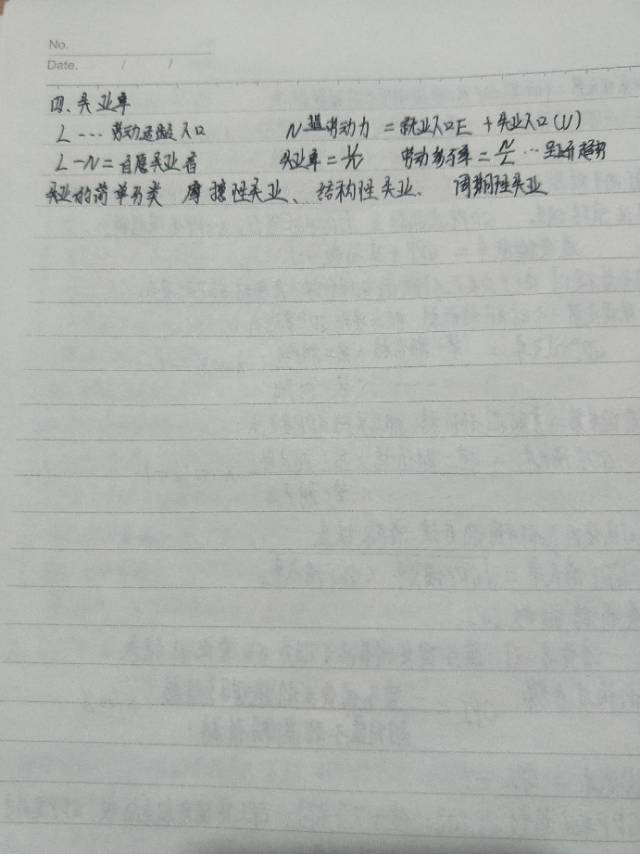 No.
Date. / /
四、失业率
L … 劳动适龄人口 N 劳动力 = 就业人口E + 失业人口(U)
L-N=自愿失业者 失业率=U/N 劳动参与率=N/L …
失业的简单分类 摩擦性失业、结构性失业、周期性失业